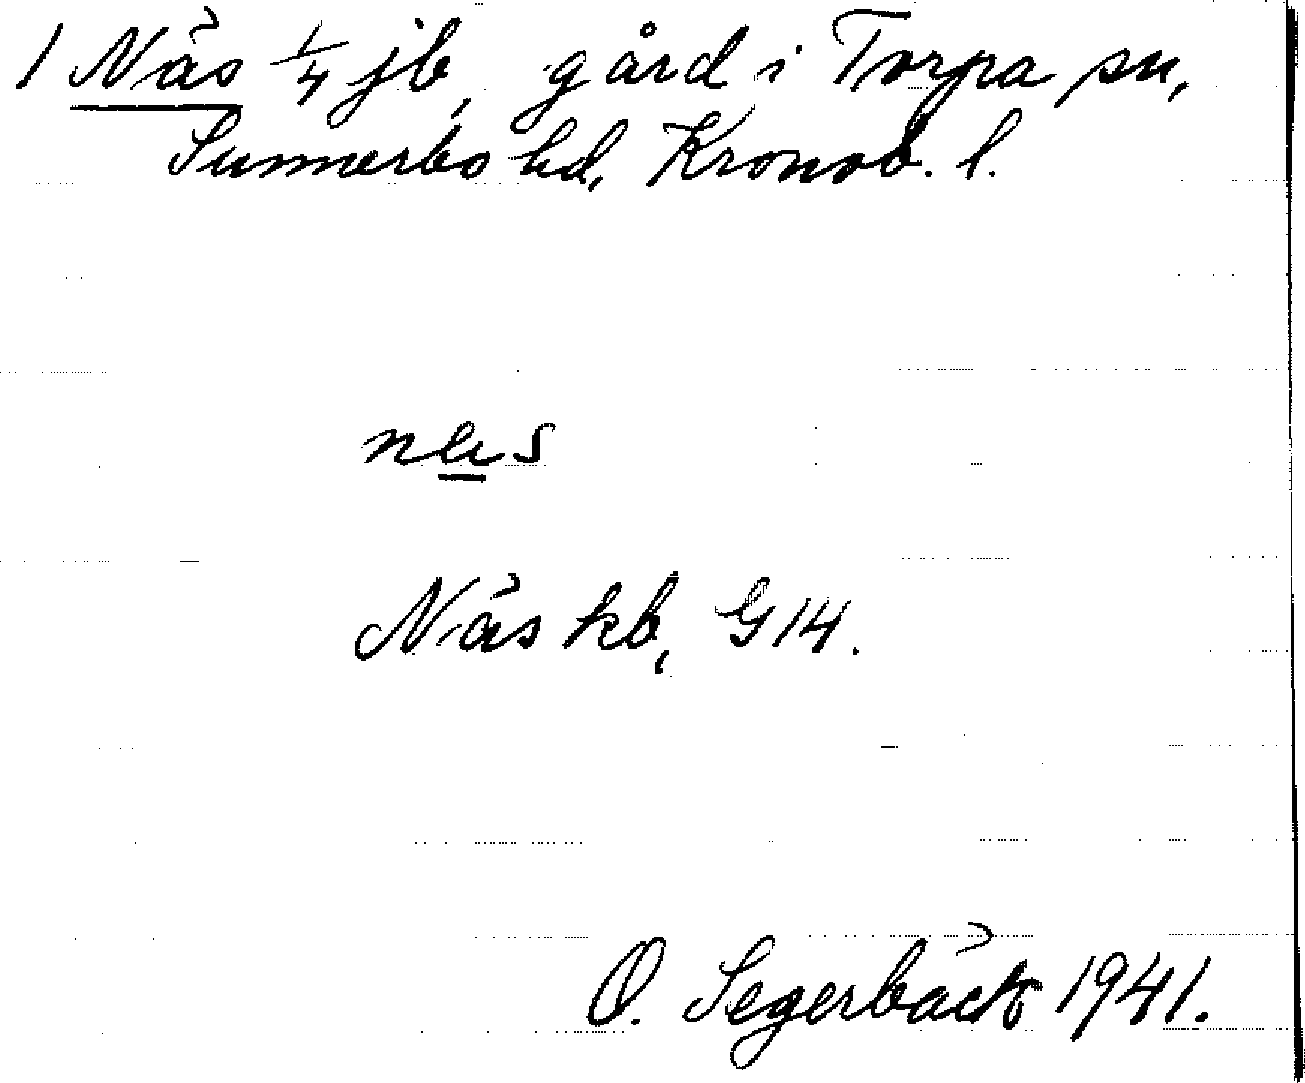 1 Näs 1/4 jb, gård i Torpa sn,
Sunnerbo hd, Kronob. l.
næs
Näs kb, G14.
O. Segerbäck 1941.